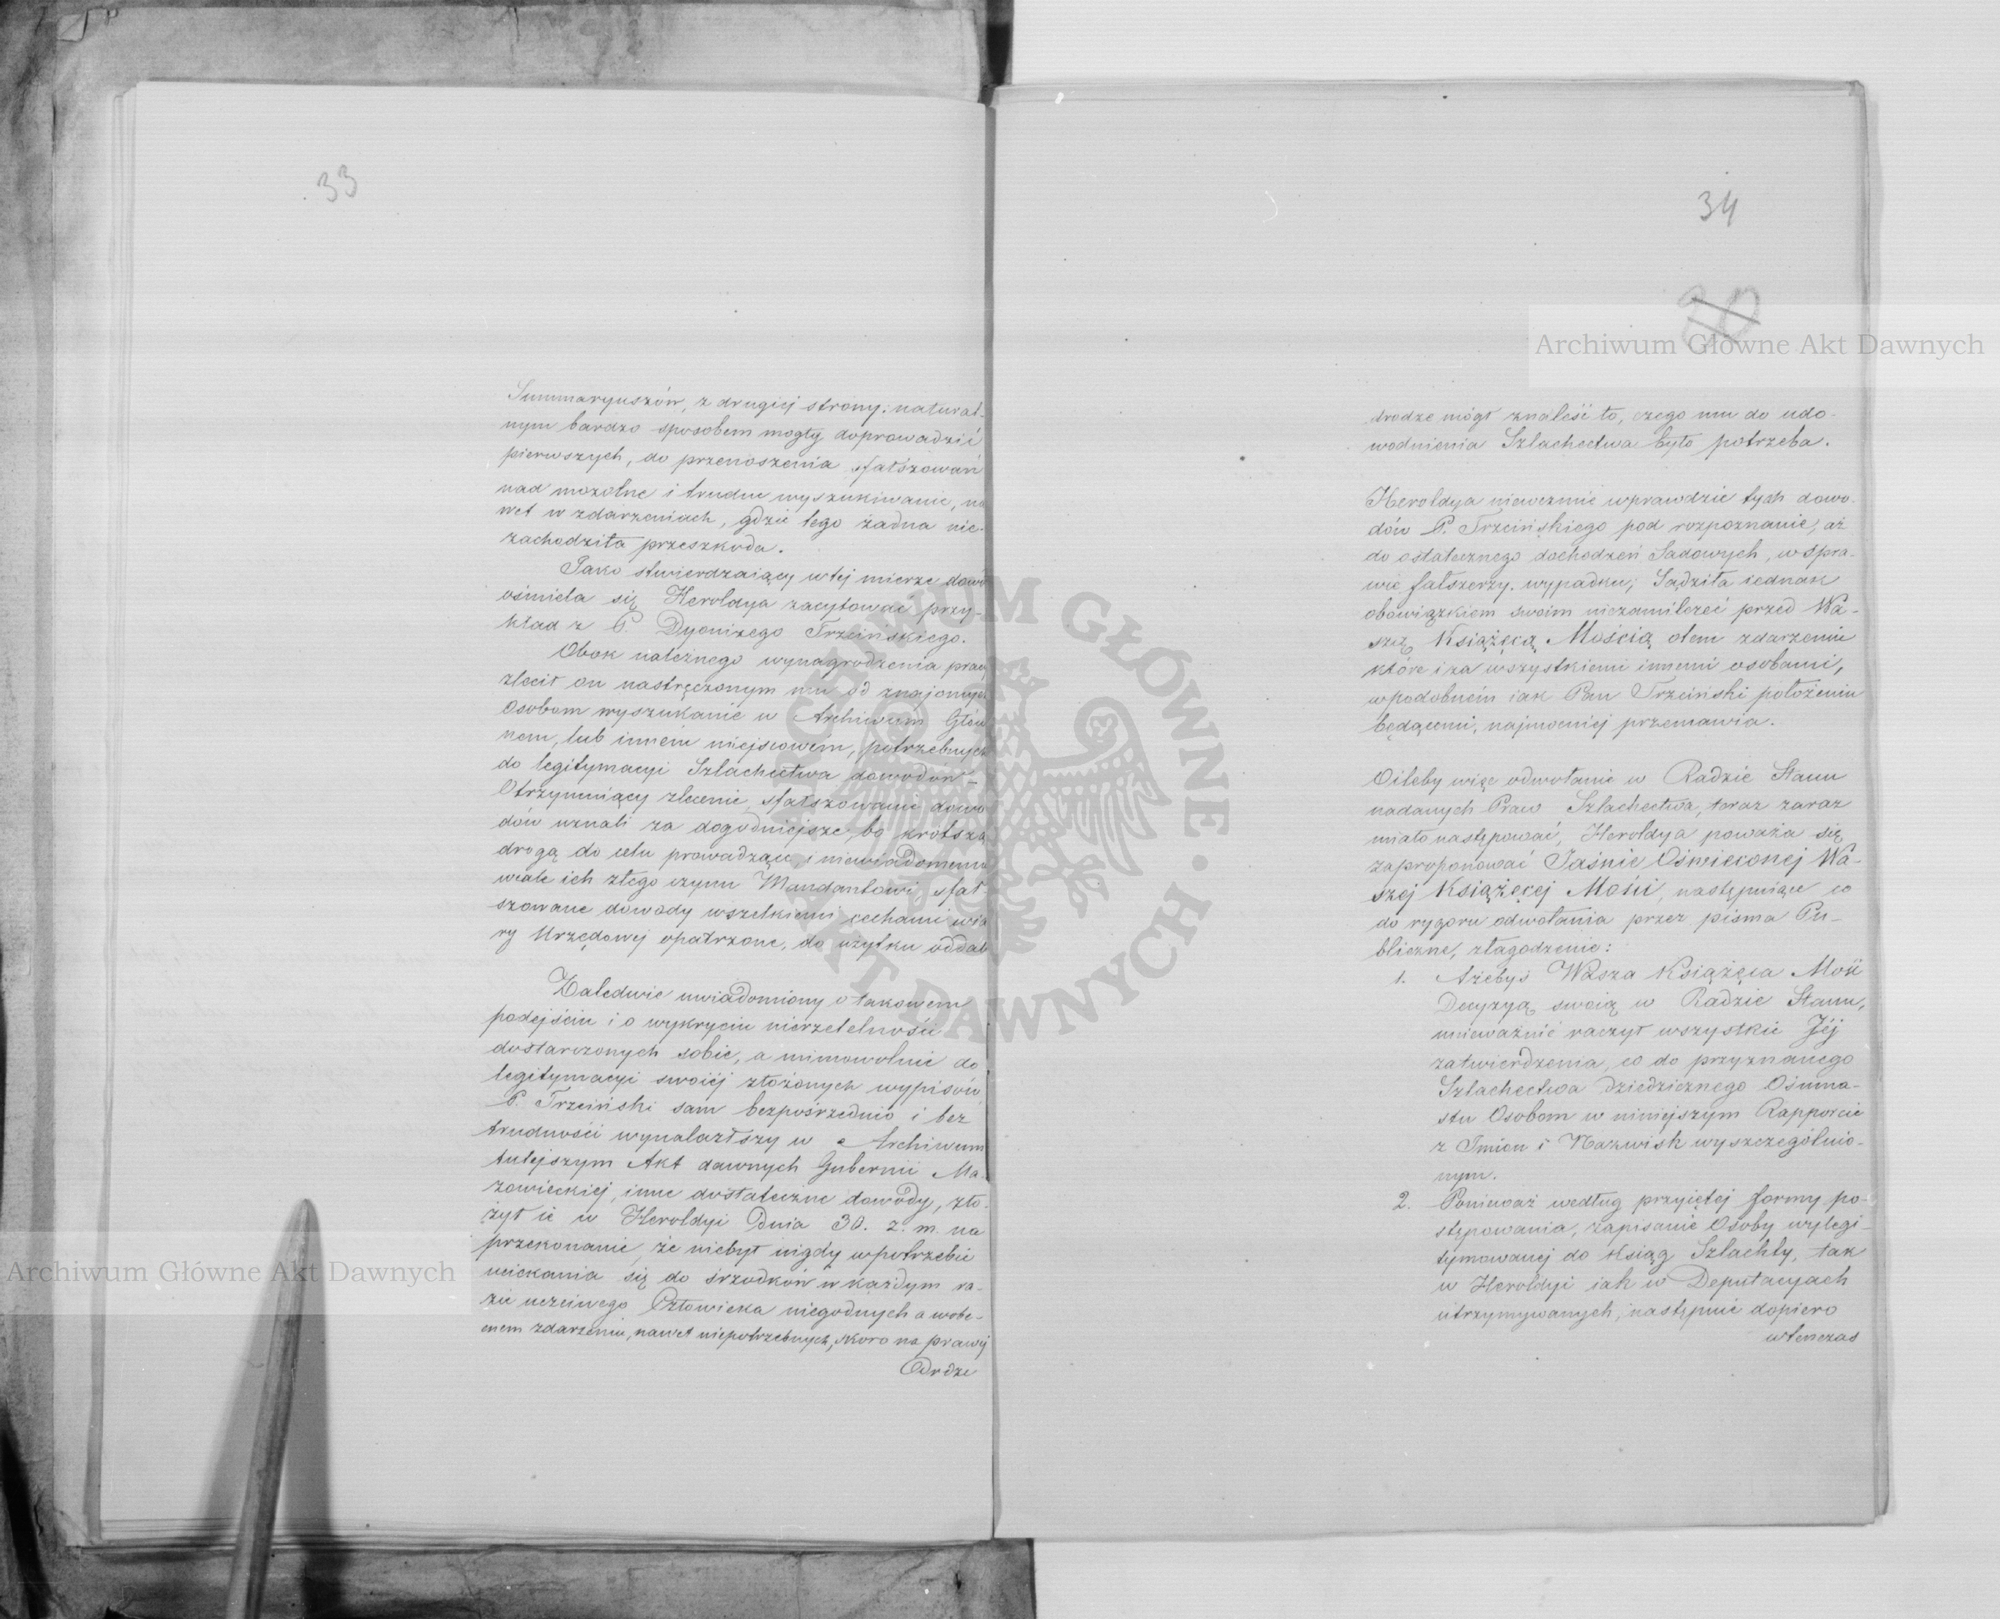 33
Summaryuszów, z drugiej strony: natural-
nym bardzo sposobem mogły doprowadzić
pierwszych, do przenoszenia sfałszowań
nad mozolne i trudne wyszukiwanie, na
wet w zdarzeniach, gdzie tego żadna nie-
zachodziła przeszkoda.
Jako stwierdzaiący w tej mierze dowó
ośmiela się Heroldya zacytować przy-
kład z P. Dyonizego Trzcińskiego.
Obok należnego wynagrodzenia pracy
zlecił on nastręczonym mu od znajomych
Osobom wyszukanie w Archiwum Głów
nem, lub innem miejscowem, potrzebnych
do legitymacyi Szlachectwa dowodów –
Otrzymuiący zlecenie, sfałszowanie dowo
dów uznali za dogodniejsze, bo krótszą
drogą do celu prowadzące, i niewiadomemu
wcale ich złego czynu Mandantowi sfał-
szowane dowody wszelkiemi cechami wia
ry Urzędowej opatrzone, do użytku oddali
Zaledwie uwiadomiony o takowem
podejściu i o wykryciu nierzetelności
dostarczonych sobie, a mimowolnie do
legitymacyi swoiéj złożonych wypisów,
P. Trzciński sam bezpośrednio i bez
trudności wynalazłszy w Archiwum
tutejszym Akt dawnych Gubernii Ma-
zowieckiej, inne dostateczne dowody, zło-
żył ie w Heroldyi Dnia 30. z. m. na
przekonanie, że niebył nigdy w potrzebie
uciekania się do śrzodków w każdym ra-
zie uczciwego Człowieka niegodnych a w obe-
cnem zdarzeniu, nawet niepotrzebnych, skoro na prawej
Drodze
34
20
Archiwum Główne Akt Dawnych
drodze mógł znaleść to, czego mu do udo-
wodnienia Szlachectwa było potrzeba.
Heroldya niewezmie wprawdzie tych dowo-
dów P. Trzcińskiego pod rozpoznanie, aż
do ostatecznego dochodzeń Sadowych, w spra-
wie fałszerzy, wypadku; Sądziła iednak
obowiązkiem swoim niezamilczeć przed Wa-
szą Książęcą Mością otem zdarzeniu
które i za wszystkiemi innemi osobami,
w podobném iak Pan Trzciński położeniu
będącemi, najmocniej przemawia.
Oileby więc odwołanie w Radzie Stanu
nadanych Praw Szlachectwa, teraz zaraz
miało następować, Heroldya poważa się
zaproponować Jaśnie Oświeconej Wa-
szej Książęcej Mości, następuiące co
do rygoru odwołania przez pisma Pu-
bliczne, złagodzenie:
1. Ażebyś Wasza Książęca Mość
Decyzyą swoią w Radzie Stanu,
unieważnić raczył wszystkie Jéj
zatwierdzenia, co do przyznanego
Szlachectwa dziedzicznego Ośmna-
stu Osobom w niniejszym Rapporcie
z Imion i Nazwisk wyszczególnio-
nym.
2. Ponieważ według przyiętej formy po-
stępowania, zapisanie Osoby wylegi-
tymowanej do Ksiąg Szlachty, tak
w Heroldyi iak w Deputacyach
utrzymywanych, następuie dopiero
wtenczas
Archiwum Główne Akt Dawnych
ARCHIWUM GŁÓWNE · AKT DAWNYCH ·